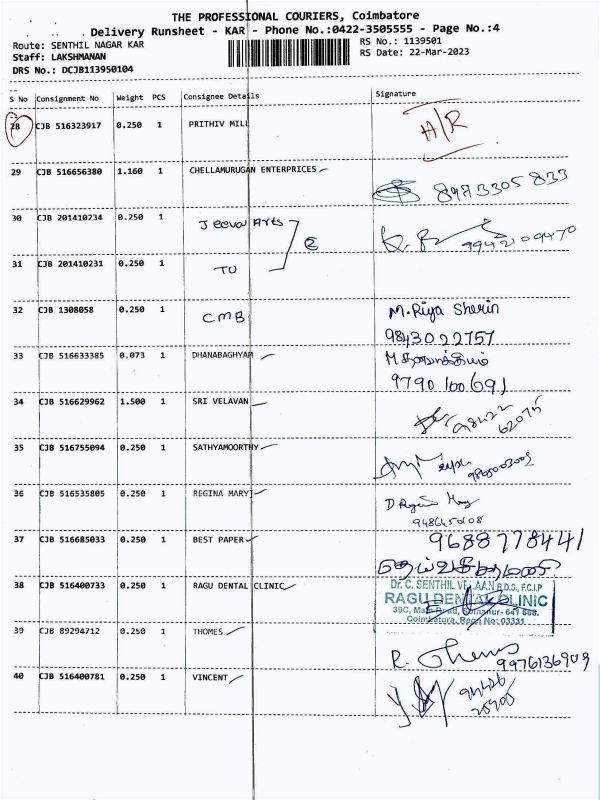 THE PROFESSIONAL COURIERS, Coimbatore
Delivery Runsheet - KAR - Phone No.:0422-3505555 - Page No.:4
Route: SENTHIL NAGAR KAR
RS No.: 1139501
Staff: LAKSHMANAN
RS Date: 22-Mar-2023
DRS No.: DCJB113950104
S No Consignment No Weight PCS Consignee Details Signature
28 CJB 516323917 0.250 1 PRITHIV MILL H/R
29 CJB 516656380 1.160 1 CHELLAMURUGAN ENTERPRICES
8973305833
30 CJB 201410234 0.250 1 Jeeva Arts
9942109470
31 CJB 201410231 0.250 1 TU
32 CJB 1308058 0.250 1 CMB M.Riya Sherin
9843022757
33 CJB 516633385 0.073 1 DHANABAGHYAM
9790100691
34 CJB 516629962 1.500 1 SRI VELAVAN
98422
62075
35 CJB 516755094 0.250 1 SATHYAMOORTHY
36 CJB 516535805 0.250 1 REGINA MARY
37 CJB 516685033 0.250 1 BEST PAPER 9688778441
38 CJB 516400733 0.250 1 RAGU DENTAL CLINIC
Dr. C. SENTHIL B.D.S., F.C.I.P
RAGU DENTAL CLINIC
39 CJB 89294712 0.250 1 THOMES
9976136909
40 CJB 516400781 0.250 1 VINCENT